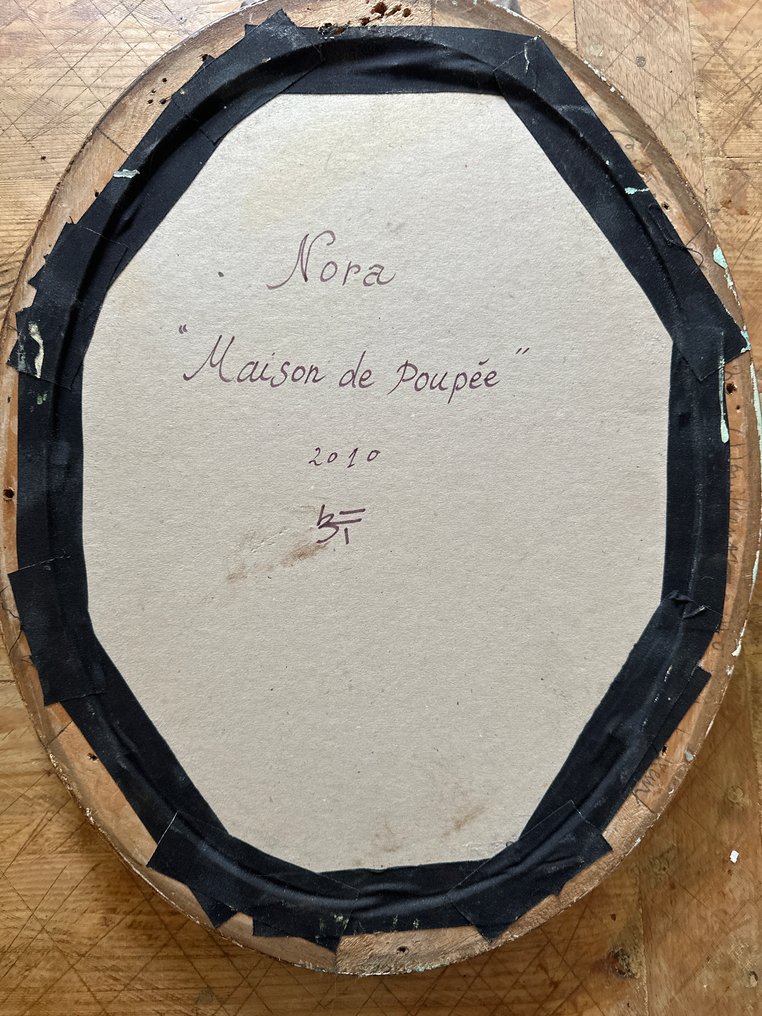 Nora
"Maison de Poupée"
2010